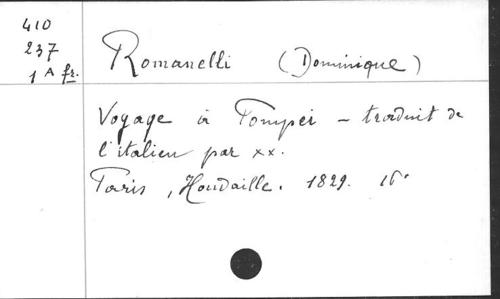 410
237
1 A fr.
Romanelli (Dominique)
Voyage à Pompéi - traduit de
l'italien par xx.
Paris, Houdaille. 1829. 16°